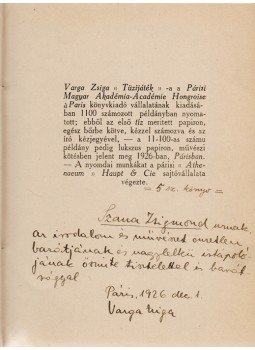 Varga Zsiga « Tüzijáték »-a a Párisi
Magyar Akadémia-Académie Hongroise
à Paris könyvkiadó vállalatának kiadásá-
ban 1100 számozott példányban nyoma-
tott; ebből az első tíz merített papiron,
egész bőrbe kötve, kézzel számozva és az
író kézjegyével, — a 11-100-as számu
példány pedig lukszus papiron, művészi
kötésben jelent meg 1926-ban, Párisban.
— A nyomdai munkákat a párisi « Athe-
naeum » Haupt & Cie sajtóvállalata
végezte.
Szana Zsigmond urnak,
az irodalom és művészet
barátjának és nagylelkű
jának őszinte tisztelettel és barát-
sággal
Páris, 1926 dec. 1.
Varga Zsiga